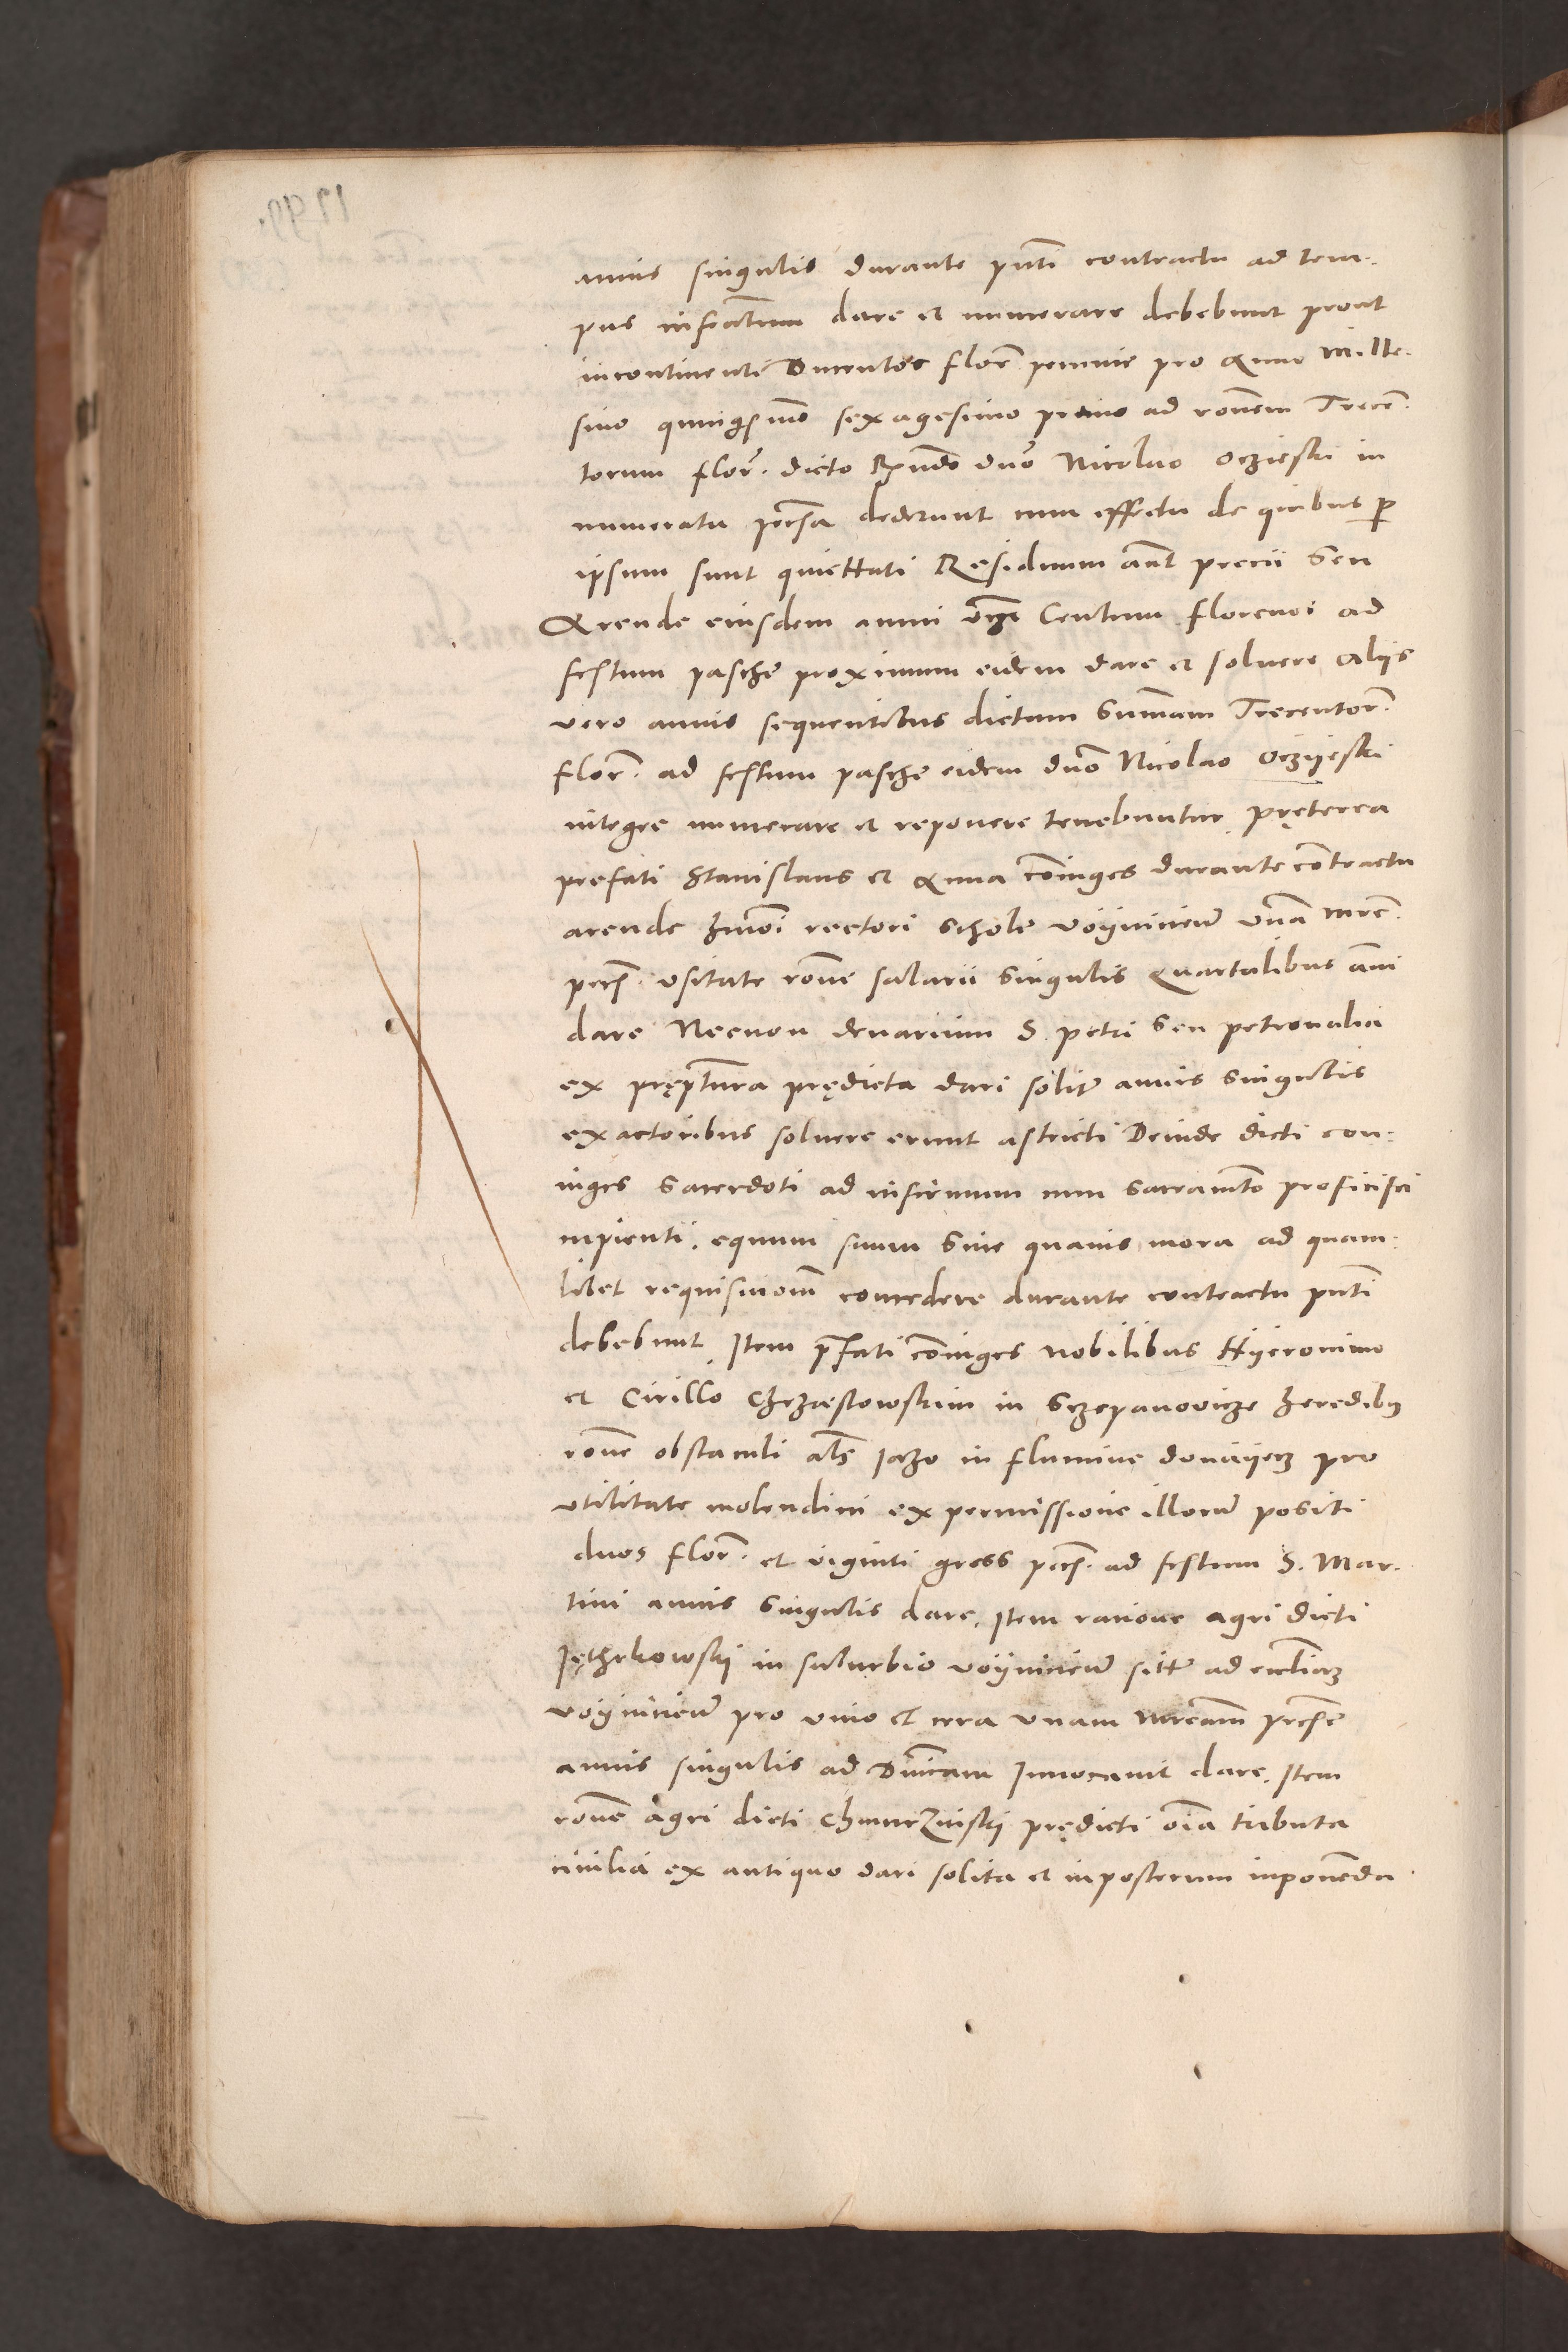 annis singulis durante pnti contractu ad tem-
pus infractum dare et numerare debebunt prout
incontinenti Ducentos flor pecunie pro Anno Mille-
simo quingmo sexagesimo primo ad ronem Trecen-
torum flor. dicto Rndo dno Nicolao Oczieski in
numerata pecunia dederunt cum effectu de quibus p
ipsum sunt quiettati Residuum aut precii seu
Arende eiusdem anni vcz Centum florenos ad
festum pasche proximum eidem dare et solvere Aliis
vero annis sequentibus dictam Summam Trecentor.
flor. ad festum pasche eidem dno Nicolao Oczyeski
integre numerare et reponere tenebuntur, pręterea
prefati Stanislaus et Anna coniuges durante contractu
arende hmoi rectori schole voyniciens unam mrc.
pecun. usitate rone salarii singulis quartalibus anni
dare Necnon denarium S. petri seu petronalia
ex pręptura prędicta dari solit annis singulis
exactoribus solvere erunt astricti Deinde dicti con-
iuges Sacerdoti ad infirmum cum sacramto proficisci
cupienti, equum suum sine quavis mora ad quam-
libet requisicionem concedere durante contractu pnti
debebunt, Item pfati coniuges nobilibus Hyeronimo
et Cirillo Chrzastowskim in Sczepanovicze heredibus
rone obstaculi als jazo in flumine donayecz pro
utilitate molendini ex permissione illorum positi
duos flor. et viginti gross pecun. ad festum S. Mar-
tini annis singulis dare, Item ratione agri dicti
Jęthrkowski in suburbio voyniciens sitt ad eccliam
voyniciens pro vino et cera unam marcam pecunie
annis singulis ad Dnicam Invocavit dare, Item
rone agri dicti Chmurzinski prędicti oia tributa
civilia ex antiquo dari solita et inposterum inponenda